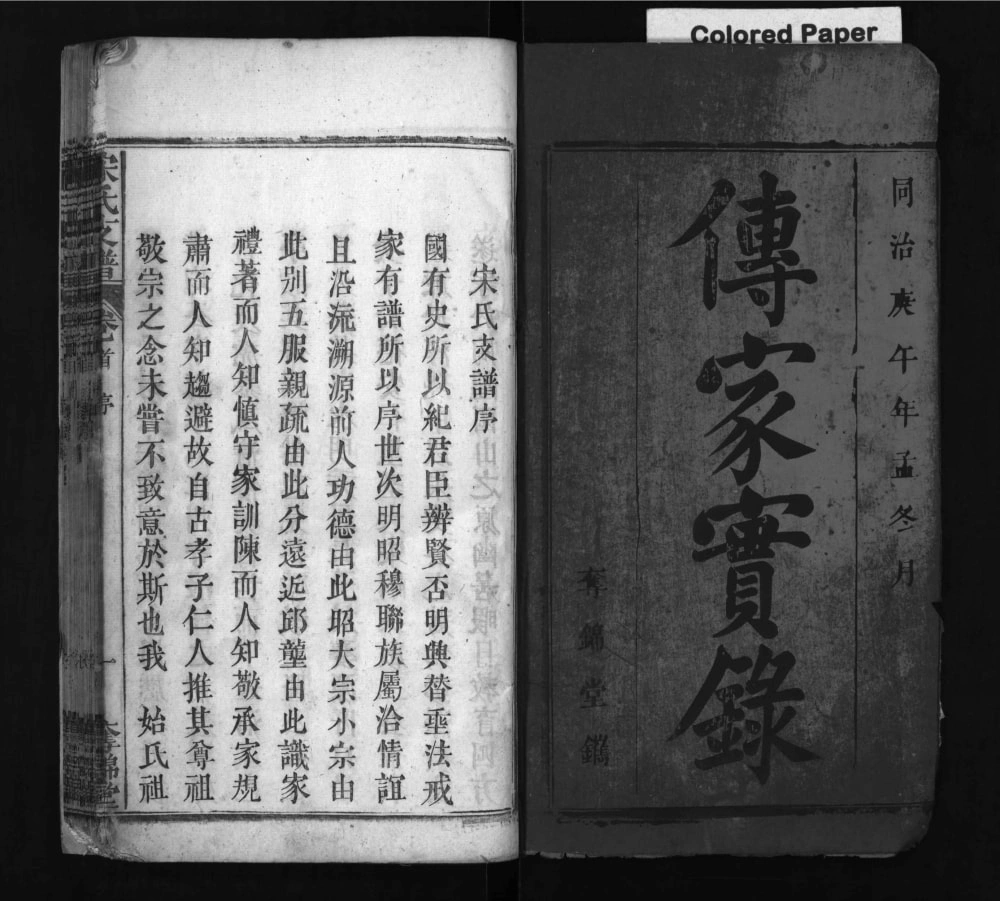 Colored Paper
同治庚午年孟冬月
傳家實錄
奪錦堂鐫
宋氏支譜序
國有史所以紀君臣辨賢否明興替垂法戒
家有譜所以序世次明昭穆聯族屬洽情誼
且沿流溯源前人功德由此昭大宗小宗由
此別五服親疏由此分遠近邱壟由此識家
禮著而人知慎守家訓陳而人知敬承家規
肅而人知趨避故自古孝子仁人推其尊祖
敬宗之念未嘗不致意於斯也我 始氏祖
宋氏支譜 卷首 序 一 奪錦堂